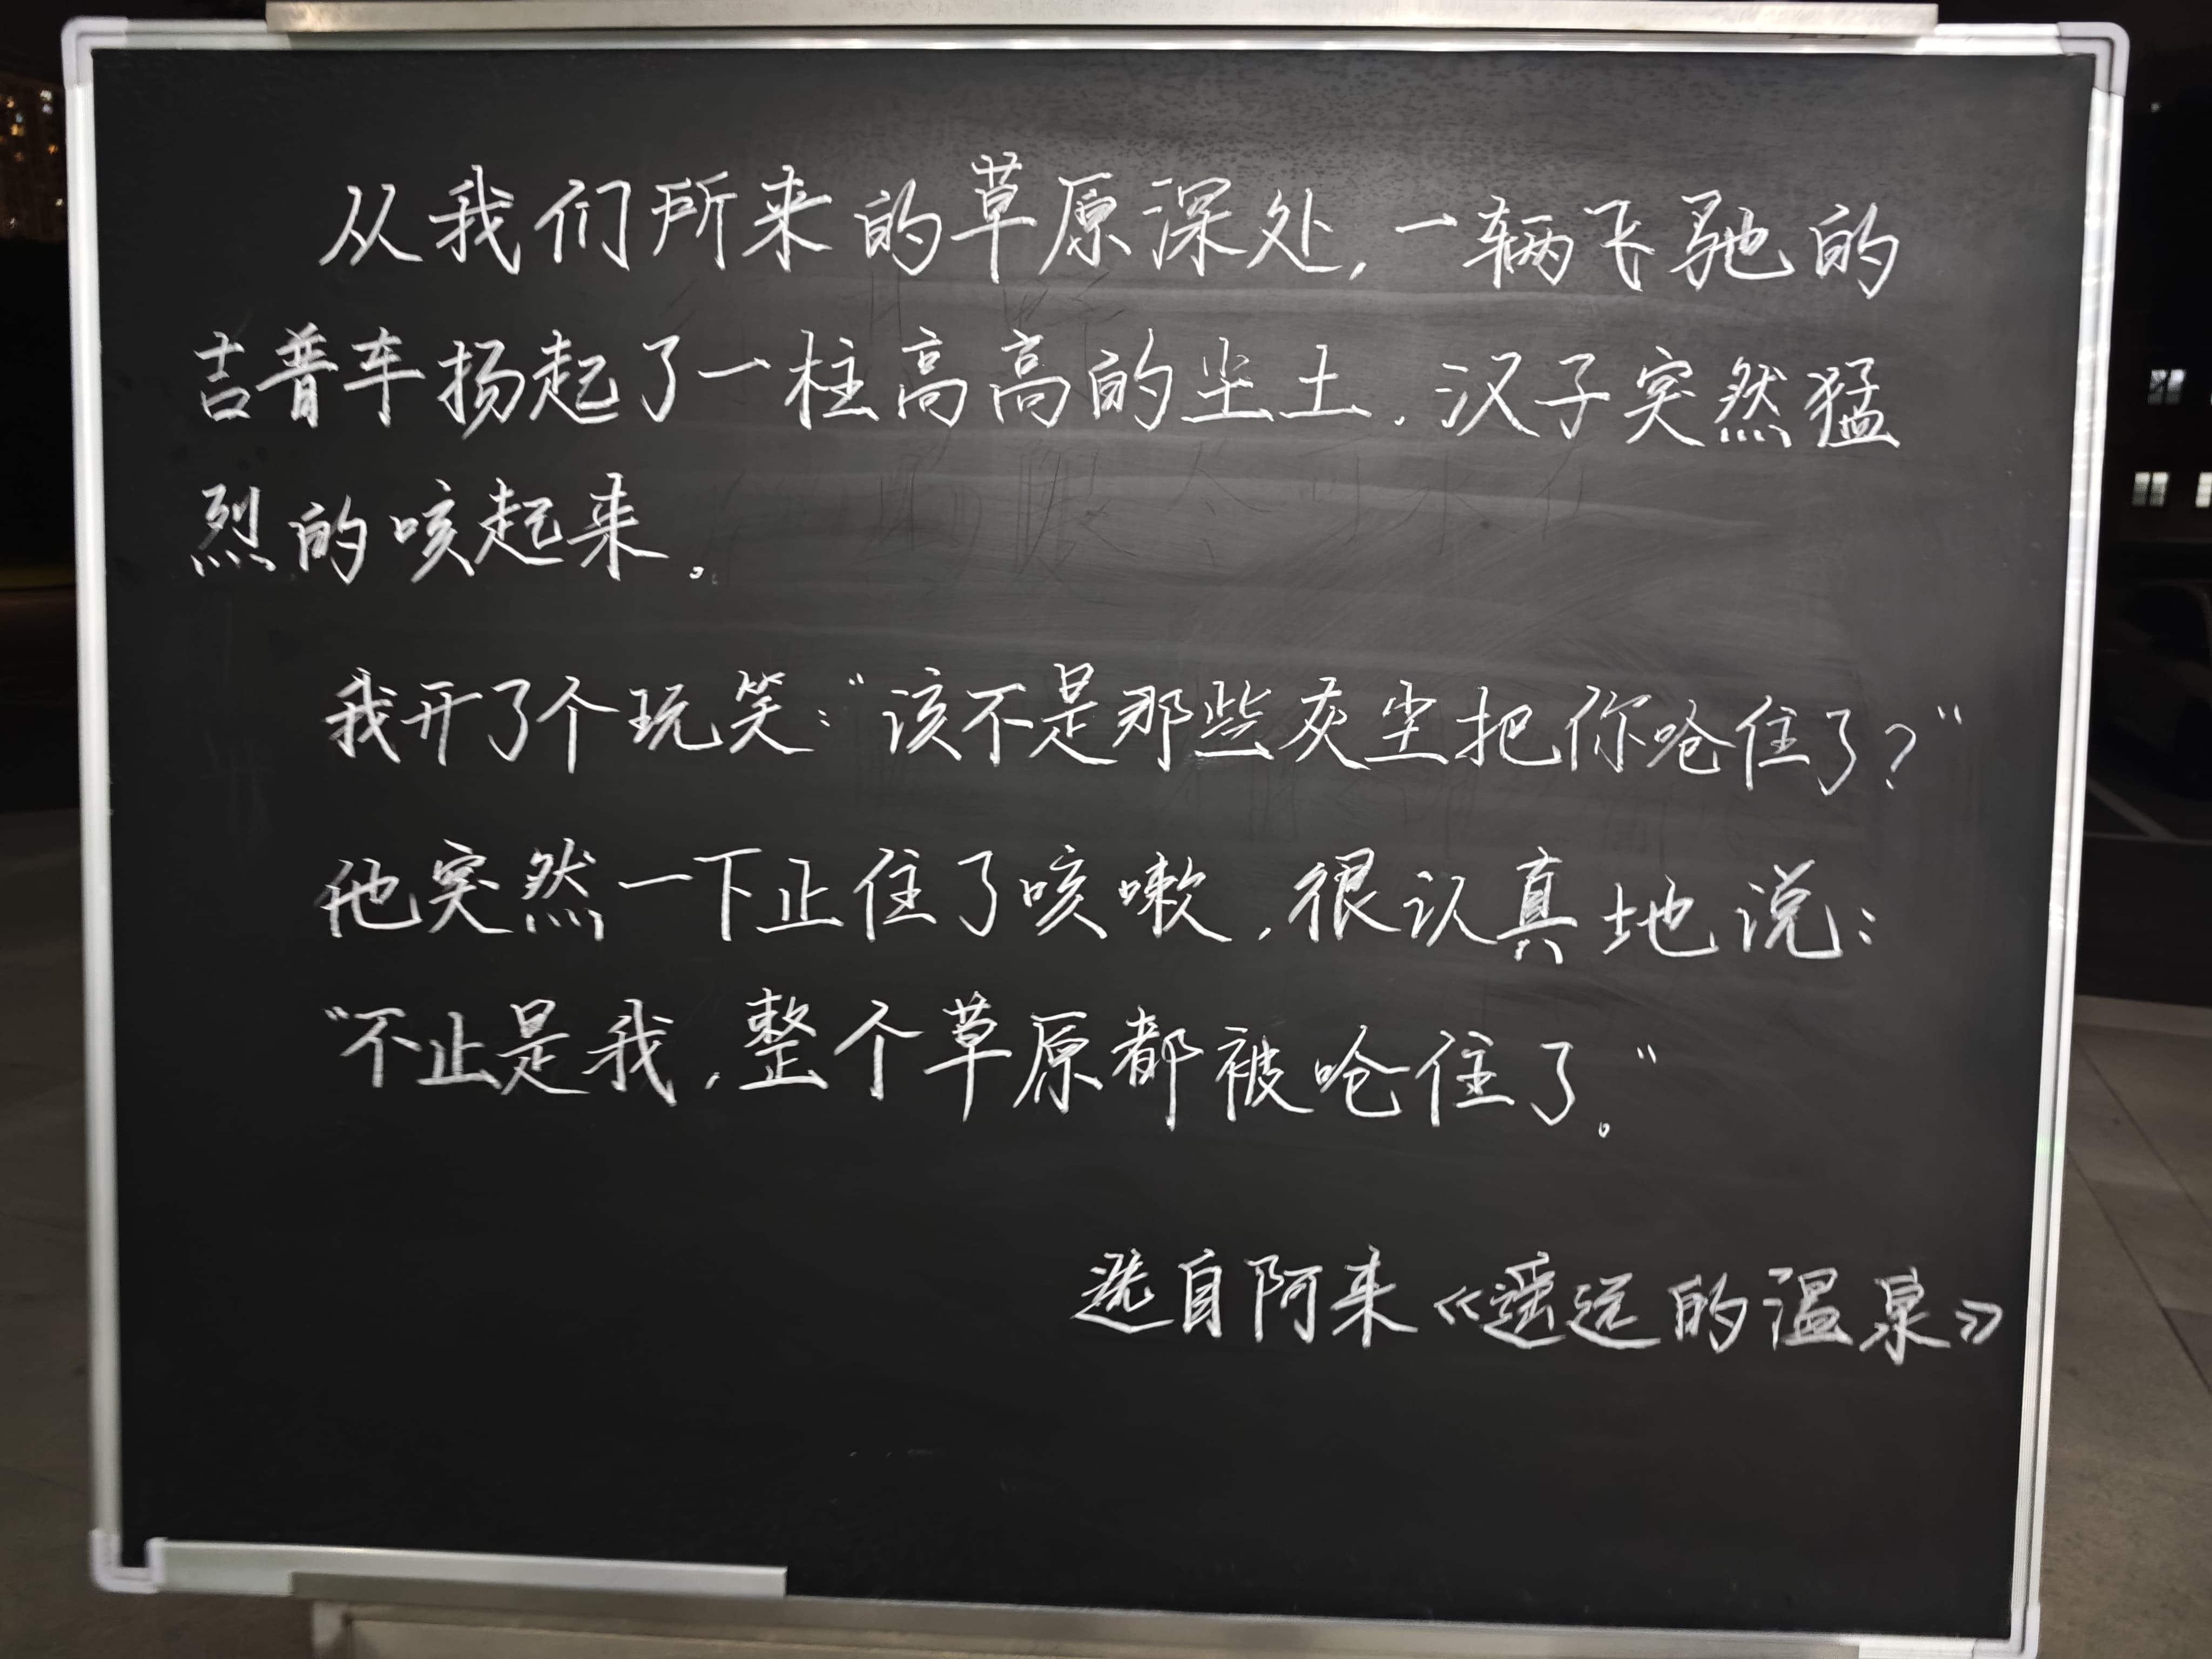 从我们所来的草原深处，一辆飞驰的
吉普车扬起了一柱高高的尘土．汉子突然猛
烈的咳起来。
我开了个玩笑：“该不是那些灰尘把你呛住了？”
他突然一下止住了咳嗽，很认真地说：
“不止是我，整个草原都被呛住了。”
选自阿来《遥远的温泉》